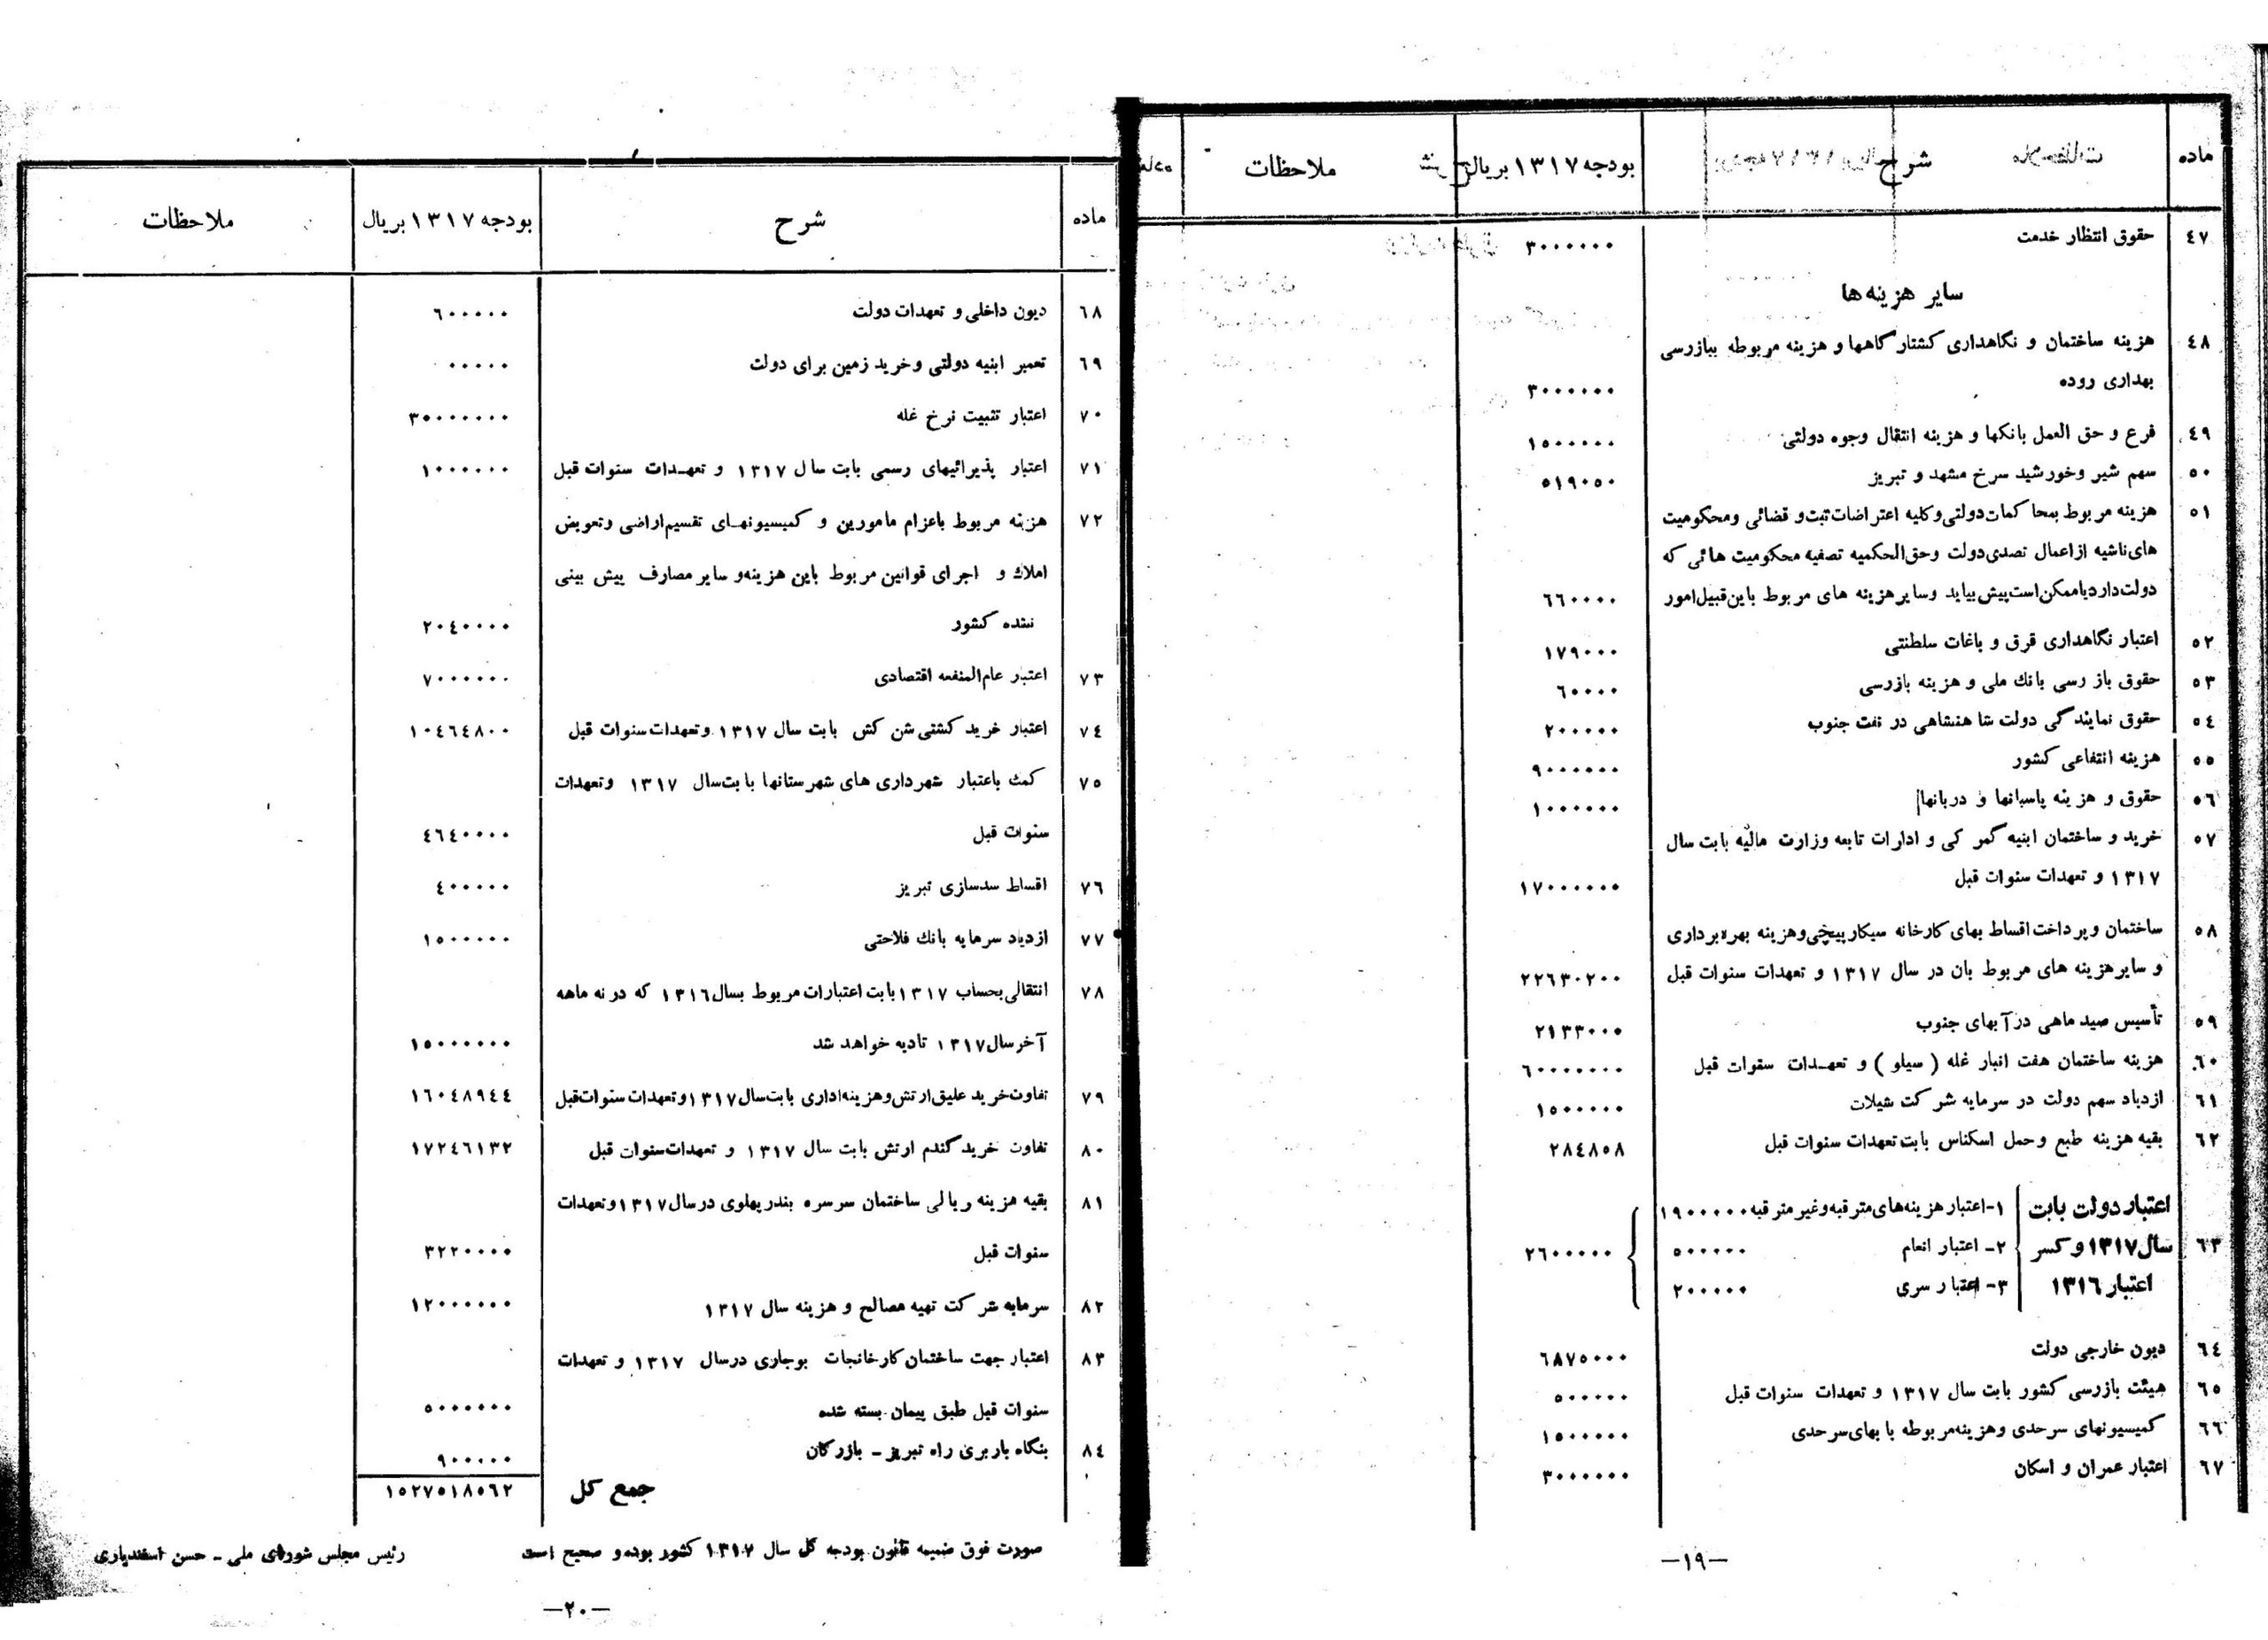 ماده شرح بودجه ۱۳۱۷ بریال ملاحظات
٤٧ حقوق انتظار خدمت ۳۰۰۰۰۰۰
سایر هزینه‌ها
٤٨ هزینه ساختمان و نگاهداری کشتارگاهها و هزینه مربوطه ببازرسی
بهداری روده ۳۰۰۰۰۰۰
٤٩ فرع و حق العمل بانکها و هزینه انتقال وجوه دولتی ۱٥۰۰۰۰۰
٥۰ سهم شیر وخورشید سرخ مشهد و تبریز ٥۱۹۰٥۰
٥۱ هزینه مربوط بمحاکمات دولتی وکلیه اعتراضات ثبت و قضائی ومحکومیت
های ناشیه ازاعمال تصدی دولت وحق‌الحکمیه تصفیه محکومیت هائی که
دولت دارد یا ممکن است پیش بیاید وسایر هزینه های مربوط باین قبیل امور ٦٦۰۰۰۰
٥۲ اعتبار نگاهداری قرق و باغات سلطنتی ۱۷۹۰۰۰
٥۳ حقوق بازرسی بانك ملی و هزینه بازرسی ٦۰۰۰۰
٥٤ حقوق نمایندگی دولت شاهنشاهی در نفت جنوب ۲۰۰۰۰۰
٥٥ هزینه انتفاعی کشور ۹۰۰۰۰۰۰
٥٦ حقوق و هزینه پاسبانها و دربانها ۱۰۰۰۰۰۰
٥۷ خرید و ساختمان ابنیه گمرکی و ادارات تابعه وزارت مالیه بابت سال
۱۳۱۷ و تعهدات سنوات قبل ۱۷۰۰۰۰۰۰
٥۸ ساختمان وپرداخت اقساط بهای کارخانه سیگارپیچی وهزینه بهره‌برداری
و سایر هزینه های مربوط بان در سال ۱۳۱۷ و تعهدات سنوات قبل ۲۲٦۳۰۲۰۰
٥۹ تأسیس صید ماهی در آبهای جنوب ۲۱۳۳۰۰۰
٦۰ هزینه ساختمان هفت انبار غله ( سیلو ) و تعهـدات سقوات قبل ٦۰۰۰۰۰۰۰
٦۱ ازدیاد سهم دولت در سرمایه شرکت شیلات ۱٥۰۰۰۰۰
٦۲ بقیه هزینه طبع وحمل اسکناس بابت تعهدات سنوات قبل ۲۸٤۸٥۸
اعتبار دولت بابت ۱-اعتبار هزینه‌های مترقبه وغیر مترقبه ۱۹۰۰۰۰۰
٦۳ سال ۱۳۱۷ و کسر ۲- اعتبار انعام ٥۰۰۰۰۰ ۲٦۰۰۰۰۰
اعتبار ۱۳۱٦ ۳- اعتبار سری ۲۰۰۰۰۰
٦٤ دیون خارجی دولت ٦۸۷٥۰۰۰
٦٥ هیئت بازرسی کشور بابت سال ۱۳۱۷ و تعهدات سنوات قبل ٥۰۰۰۰۰
٦٦ کمیسیونهای سرحدی وهزینه مربوطه با بهای سرحدی ۱٥۰۰۰۰۰
٦۷ اعتبار عمران و اسکان ۳۰۰۰۰۰۰
—۱۹—
ماده شرح بودجه ۱۳۱۷ بریال ملاحظات
٦۸ دیون داخلی و تعهدات دولت ٦۰۰۰۰۰
٦۹ تعمیر ابنیه دولتی وخرید زمین برای دولت ۰۰۰۰۰
۷۰ اعتبار تثبیت نرخ غله ۳٥۰۰۰۰۰۰
۷۱ اعتبار پذیرائیهای رسمی بابت سال ۱۳۱۷ و تعهـدات سنوات قبل ۱۰۰۰۰۰۰
۷۲ هزینه مربوط باعزام مامورین و کمیسیونهـای تقسیم اراضی وتعویض
املاك و اجرای قوانین مربوط باین هزینه‌و سایر مصارف پیش بینی
نشده کشور ۲۰٤۰۰۰۰
۷۳ اعتبار عام‌المنفعه اقتصادی ۷۰۰۰۰۰۰
۷٤ اعتبار خرید کشتی شن کش بابت سال ۱۳۱۷ وتعهدات سنوات قبل ۱۰٤٦٤۸۰۰
۷٥ کمك باعتبار شهرداری های شهرستانها بابت‌سال ۱۳۱۷ وتعهدات
سنوات قبل ٤٦٤۰۰۰۰
۷٦ اقساط سدسازی تبریز ٤۰۰۰۰۰
۷۷ ازدیاد سرمایه بانك فلاحتی ۱٥۰۰۰۰۰
۷۸ انتقالی بحساب ۱۳۱۷ بابت اعتبارات مربوط بسال ۱۳۱٦ که در نه ماهه
آخر سال ۱۳۱۷ تادیه خواهد شد ۱٥۰۰۰۰۰۰
۷۹ تفاوت خرید علیق ارتش وهزینه‌اداری بابت‌سال ۱۳۱۷ وتعهدات سنوات‌قبل ۱٦۰٤۸۹٤٤
۸۰ تفاوت خرید گندم ارتش بابت سال ۱۳۱۷ و تعهدات‌سنوات قبل ۱۷۲٤٦۱۳۲
۸۱ بقیه هزینه ریالی ساختمان سرسره بندر پهلوی در سال ۱۳۱۷ وتعهدات
سنوات قبل ۳۲۲۰۰۰۰
۸۲ سرمایه شرکت تهیه مصالح و هزینه سال ۱۳۱۷ ۱۲۰۰۰۰۰۰
۸۳ اعتبار جهت ساختمان کارخانجات بوجاری درسال ۱۳۱۷ و تعهدات
سنوات قبل طبق پیمان بسته شده ٥۰۰۰۰۰۰
۸٤ بنگاه باربری راه تبریز – بازرگان ۹۰۰۰۰۰
جمع کل ۱٥۲۷٥۱۸٥٦۲
صورت فوق ضمیمه قانون بودجه کل سال ۱۳۱۷ کشور بوده و صحیح است
رئیس مجلس شورای ملی – حسن اسفندیاری
—۲۰—